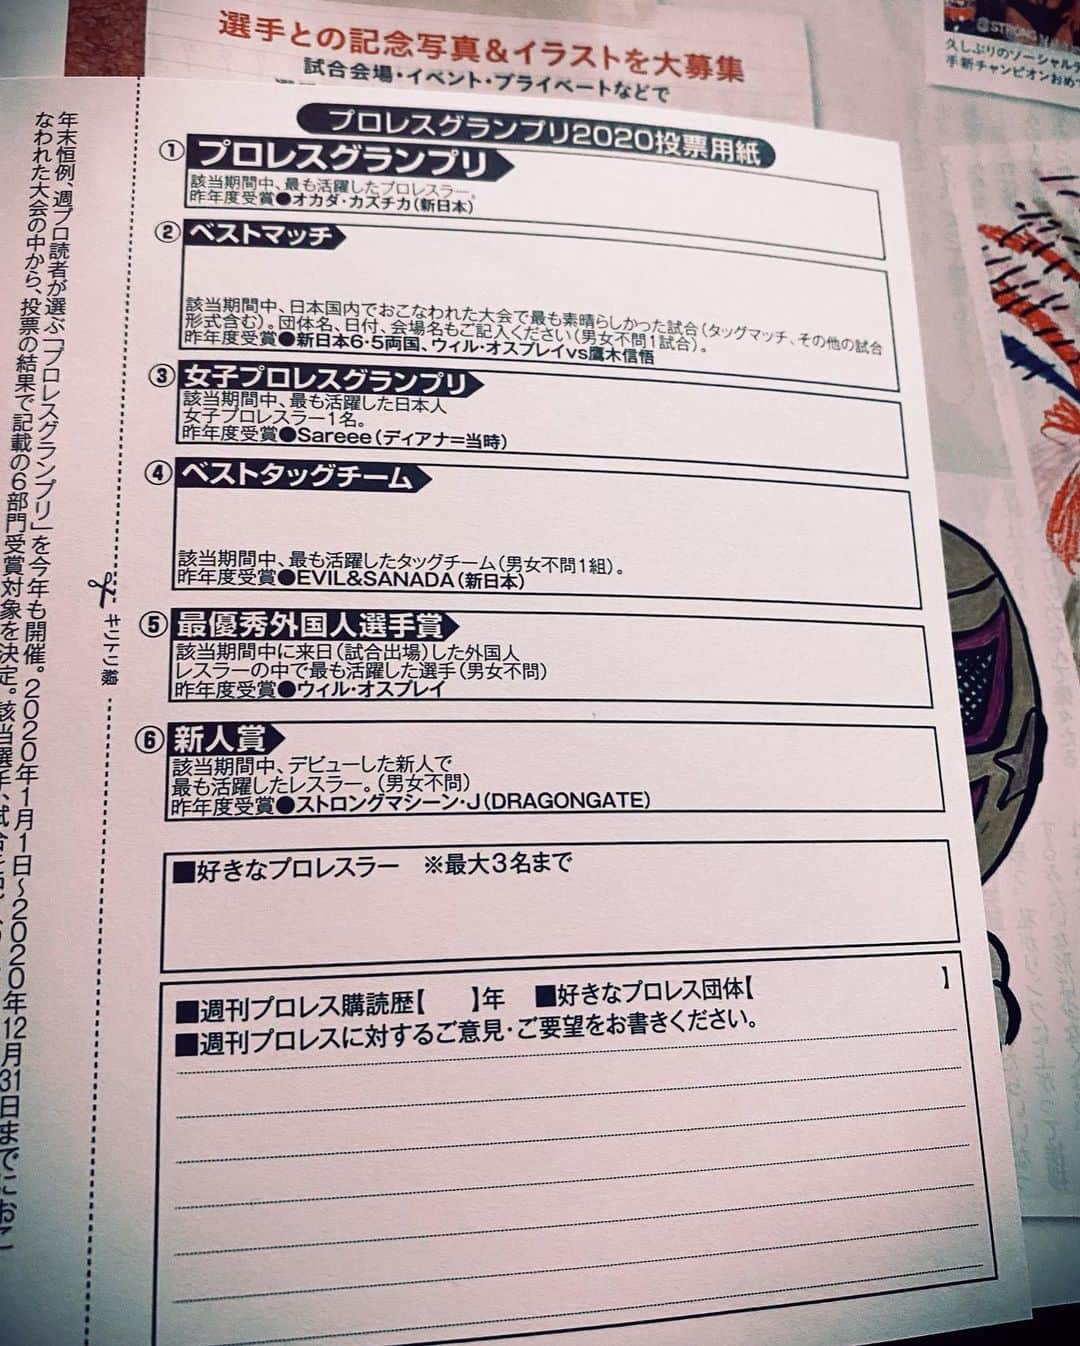 選手との記念写真＆イラストを大募集
試合会場・イベント・プライベートなどで
久しぶりのソーシャルデ
手新チャンピオンおめで
年末恒例、週プロ読者が選ぶ「プロレスグランプリ」を今年も開催。2020年1月1日～2020年12月31日までにおこ
なわれた大会の中から、投票の結果で記載の6部門受賞対象を決定。該当選手、試合を記
キリトリ線
プロレスグランプリ2020投票用紙
①プロレスグランプリ
該当期間中、最も活躍したプロレスラー。
昨年度受賞●オカダ・カズチカ（新日本）
②ベストマッチ
該当期間中、日本国内でおこなわれた大会で最も素晴らしかった試合（タッグマッチ、その他の試合
形式含む）。団体名、日付、会場名もご記入ください（男女不問1試合）。
昨年度受賞●新日本6・5両国、ウィル・オスプレイvs鷹木信悟
③女子プロレスグランプリ
該当期間中、最も活躍した日本人
女子プロレスラー1名。
昨年度受賞●Sareee（ディアナ＝当時）
④ベストタッグチーム
該当期間中、最も活躍したタッグチーム（男女不問1組）。
昨年度受賞●EVIL&SANADA（新日本）
⑤最優秀外国人選手賞
該当期間中に来日（試合出場）した外国人
レスラーの中で最も活躍した選手（男女不問）
昨年度受賞●ウィル・オスプレイ
⑥新人賞
該当期間中、デビューした新人で
最も活躍したレスラー。（男女不問）
昨年度受賞●ストロングマシーン・J（DRAGONGATE）
■好きなプロレスラー　※最大3名まで
■週刊プロレス購読歴【　　】年　■好きなプロレス団体【　　　　　　　】
■週刊プロレスに対するご意見・ご要望をお書きください。